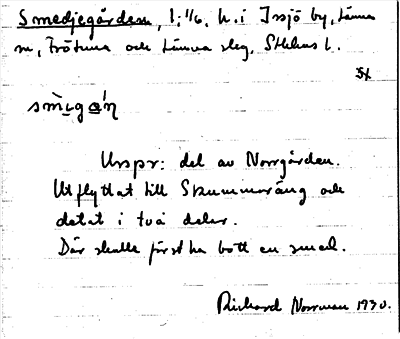 Smedjegården, 1; 1/6, h. i Issjö by, Länna
sn, Frötuna och Länna slg, Sthlms l.
smìgá̱n
Urspr: del av Norrgården.
Utflyttat till Skummuräng och
delat i två delar.
Där skulle först ha bott en smed.
Richard Norrman 1930.